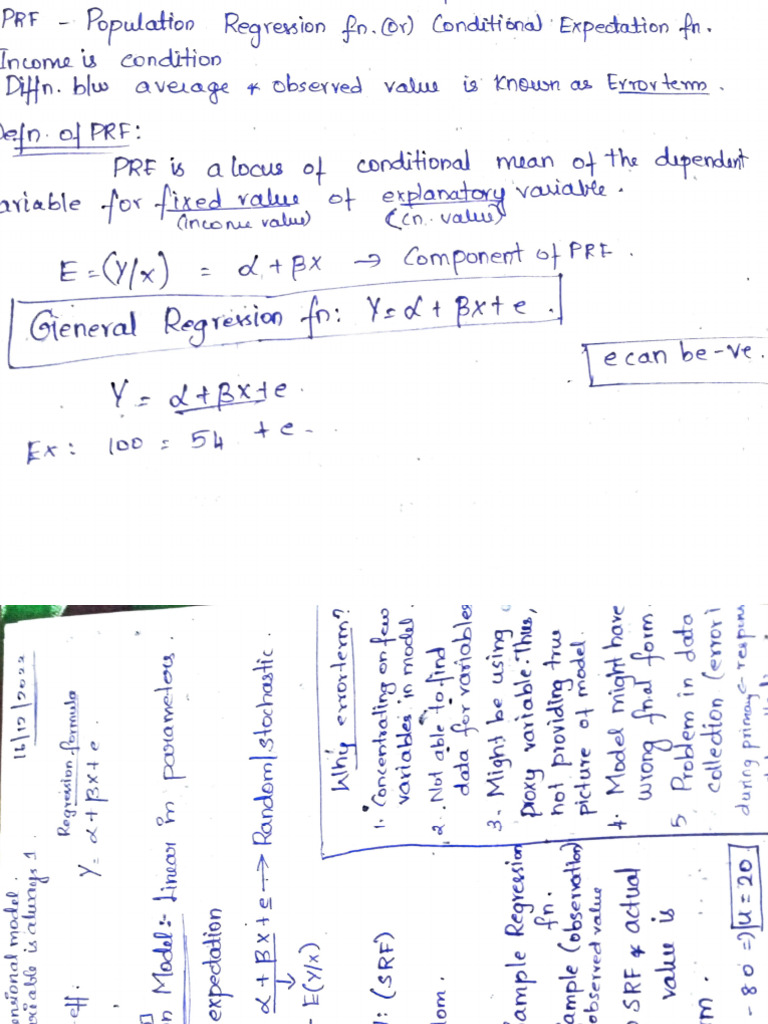 PRF - Population Regression fn. (or) Conditional Expectation fn.
Income is condition
Diffn. b/w average & observed value is known as Error term.
Defn. of PRF:
PRF is a locus of conditional mean of the dependent
ariable for fixed value of explanatory variable.
(income value) (cn. value)
E = (Y/x) = α + βx → Component of PRF.
General Regression fn: Y = α + βx + e.
e can be -ve.
Y = α + βx + e.
Ex: 100 = 54 + e
16/12/2022
ensional model.
riable is always 1
Regression formula
Y = α + βx + e.
eff:
n Model:- Linear in parameters.
expectation
α + βx + e → Random/stochastic.
↓
- E(Y/x)
: (SRF)
dom.
Why error term?
1. Concentrating on few
variables in model.
2. Not able to find
data for variables
3. Might be using
proxy variable. Thus,
not providing true
picture of model.
4. Model might have
wrong fnal form.
5. Problem in data
collection (error i
during primary
ample Regression
fn.
ample (observation)
observed value
SRF & actual
value is
m.
- 80 => u = 20.